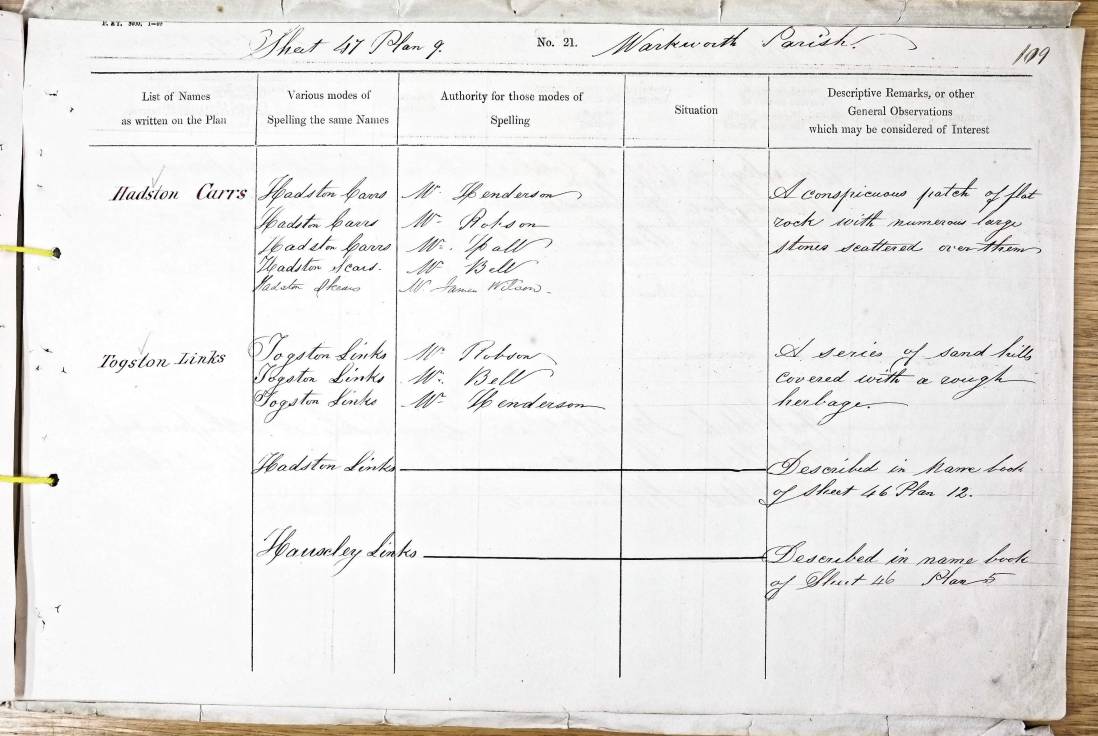 Sheet 47 Plan 9. No. 21. Warkworth Parish. 109
List of Names
as written on the Plan
Various modes of
Spelling the same Names
Authority for those modes of
Spelling
Situation
Descriptive Remarks, or other
General Observations
which may be considered of Interest
Hadston Carrs Hadston Carrs Mr. Henderson A conspicuous patch of flat
Hadston Carrs Mr. Robson rock with numerous large
Hadston Carrs Mr. Hall stones scattered over them
Hadston Scars. Mr Bell
Hadston Skears Mr. James Wilson.
Togston Links Togston Links Mr Robson A series of sand hills
Togston Links Mr. Bell covered with a rough
Togston Links Mr Henderson herbage.
Hadston Links Described in Name book
of Sheet 46 Plan 12.
Hauxley Links Described in name book
of Sheet 46 Plan 5